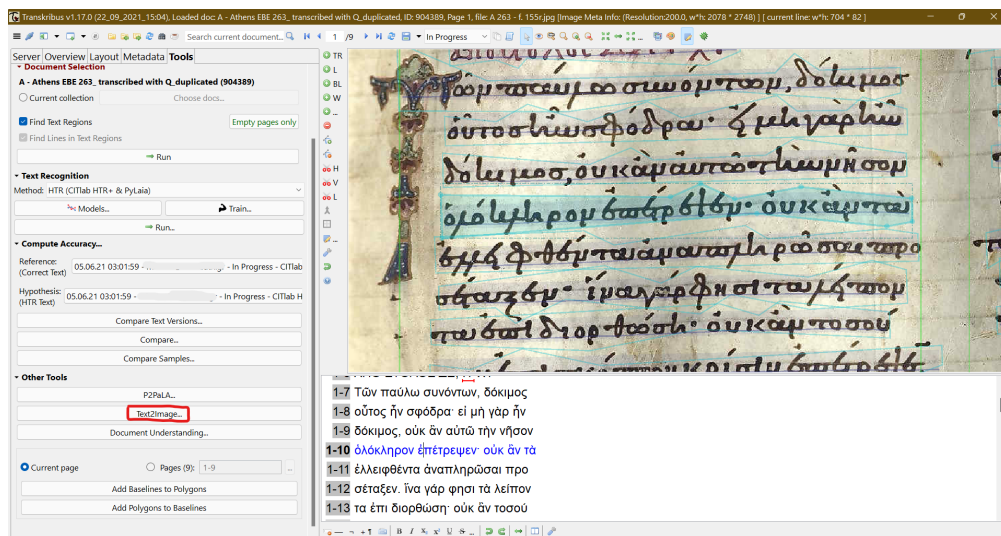 Transkribus v1.17.0 (22_09_2021_15:04), Loaded doc: A - Athens EBE 263_ transcribed with Q_duplicated, ID: 904389, Page 1, file: A 263 - f. 155r.jpg [Image Meta Info: (Resolution:200.0, w*h: 2078 * 2748) ] [ current line: w*h: 704 * 82 ]
Search current document...
1 /9
In Progress
Server Overview Layout Metadata Tools
Document Selection
A - Athens EBE 263_ transcribed with Q_duplicated (904389)
Current collection
Choose docs...
Find Text Regions
Empty pages only
Find Lines in Text Regions
Run
Text Recognition
Method: HTR (CITlab HTR+ & PyLaia)
Models...
Train...
Run...
Compute Accuracy...
Reference:
(Correct Text)
05.06.21 03:01:59 -
- In Progress - CITlab
Hypothesis:
(HTR Text)
05.06.21 03:01:59 -
- In Progress - CITlab H
Compare Text Versions...
Compare...
Compare Samples...
Other Tools
P2PaLA...
Text2Image...
Document Understanding...
Current page
Pages (9): 1-9
...
Add Baselines to Polygons
Add Polygons to Baselines
TR
L
BL
W
...
H
V
L
...
Τῶν παύλω συνόντων, δόκιμος
οὗτος ἦν σφόδρα· εἰ μὴ γὰρ ἦν
δόκιμος, οὐκ ἂν αὐτῶ τὴν νῆσον
ὁλόκληρον ἐπέτρεψεν· οὐκ ἂν τὰ
ἐλλειφθέντα ἀναπληρῶσαι προ
σέταξεν· ἵνα γάρ φησι τὰ λείπον
τα ἐπι διορθώση· οὐκ ἂν τοσού
1-7 Τῶν παύλω συνόντων, δόκιμος
1-8 οὗτος ἦν σφόδρα· εἰ μὴ γὰρ ἦν
1-9 δόκιμος, οὐκ ἂν αὐτῶ τὴν νῆσον
1-10 ὁλόκληρον ἐπέτρεψεν· οὐκ ἂν τὰ
1-11 ἐλλειφθέντα ἀναπληρῶσαι προ
1-12 σέταξεν. ἵνα γάρ φησι τὰ λείπον
1-13 τα ἐπι διορθώση· οὐκ ἂν τοσού